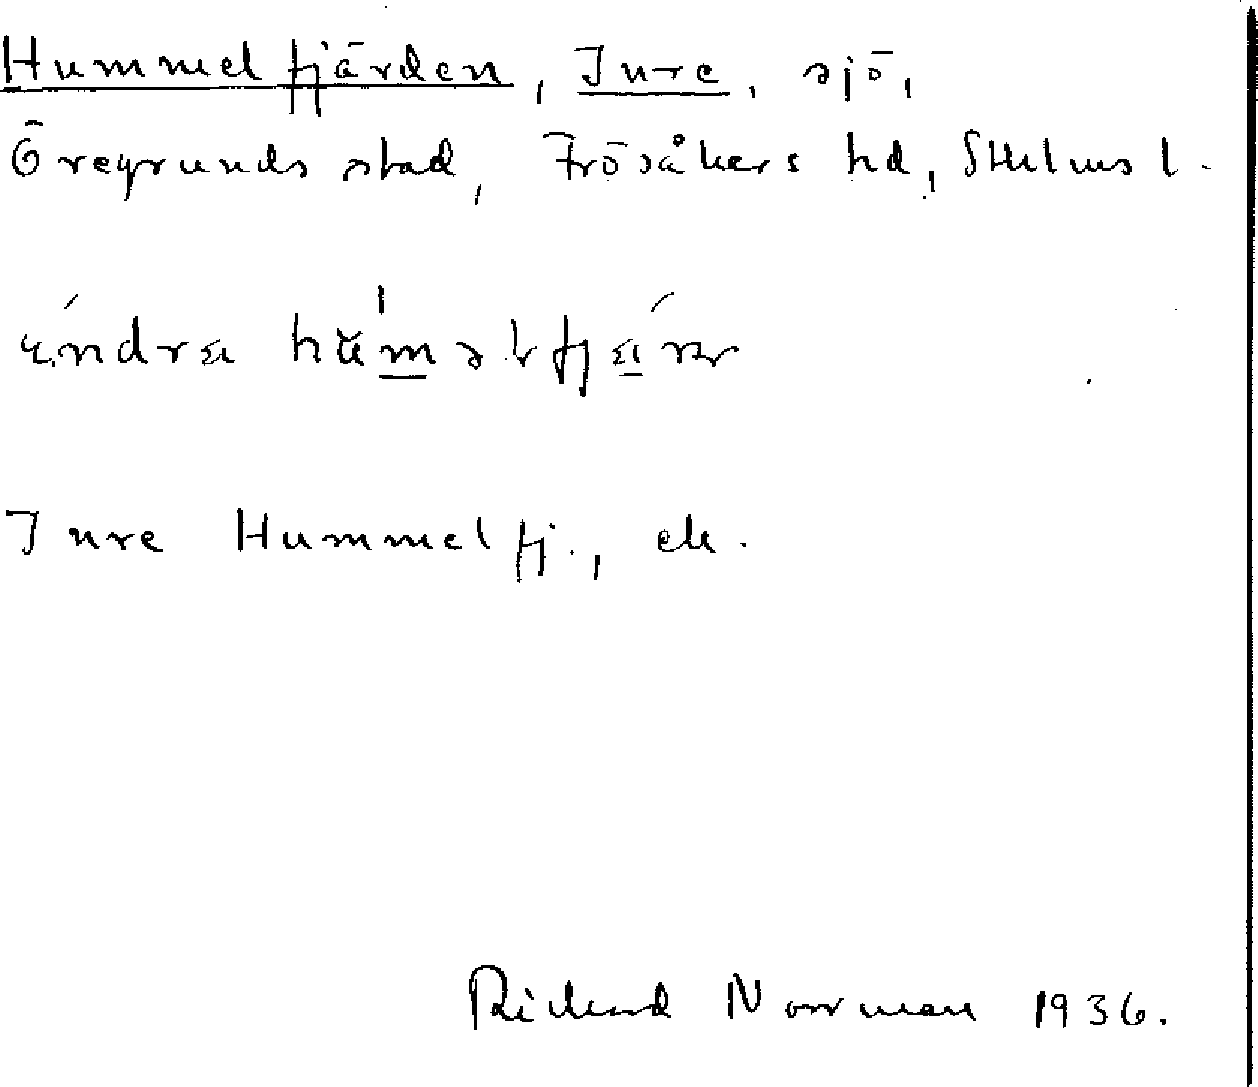 Hummelfjärden, Inre, sjö,
Öregrunds stad, Frösåkers hd, Sthlms l.
Inre Hummelfj., ek.
Richard Norrman 1936.